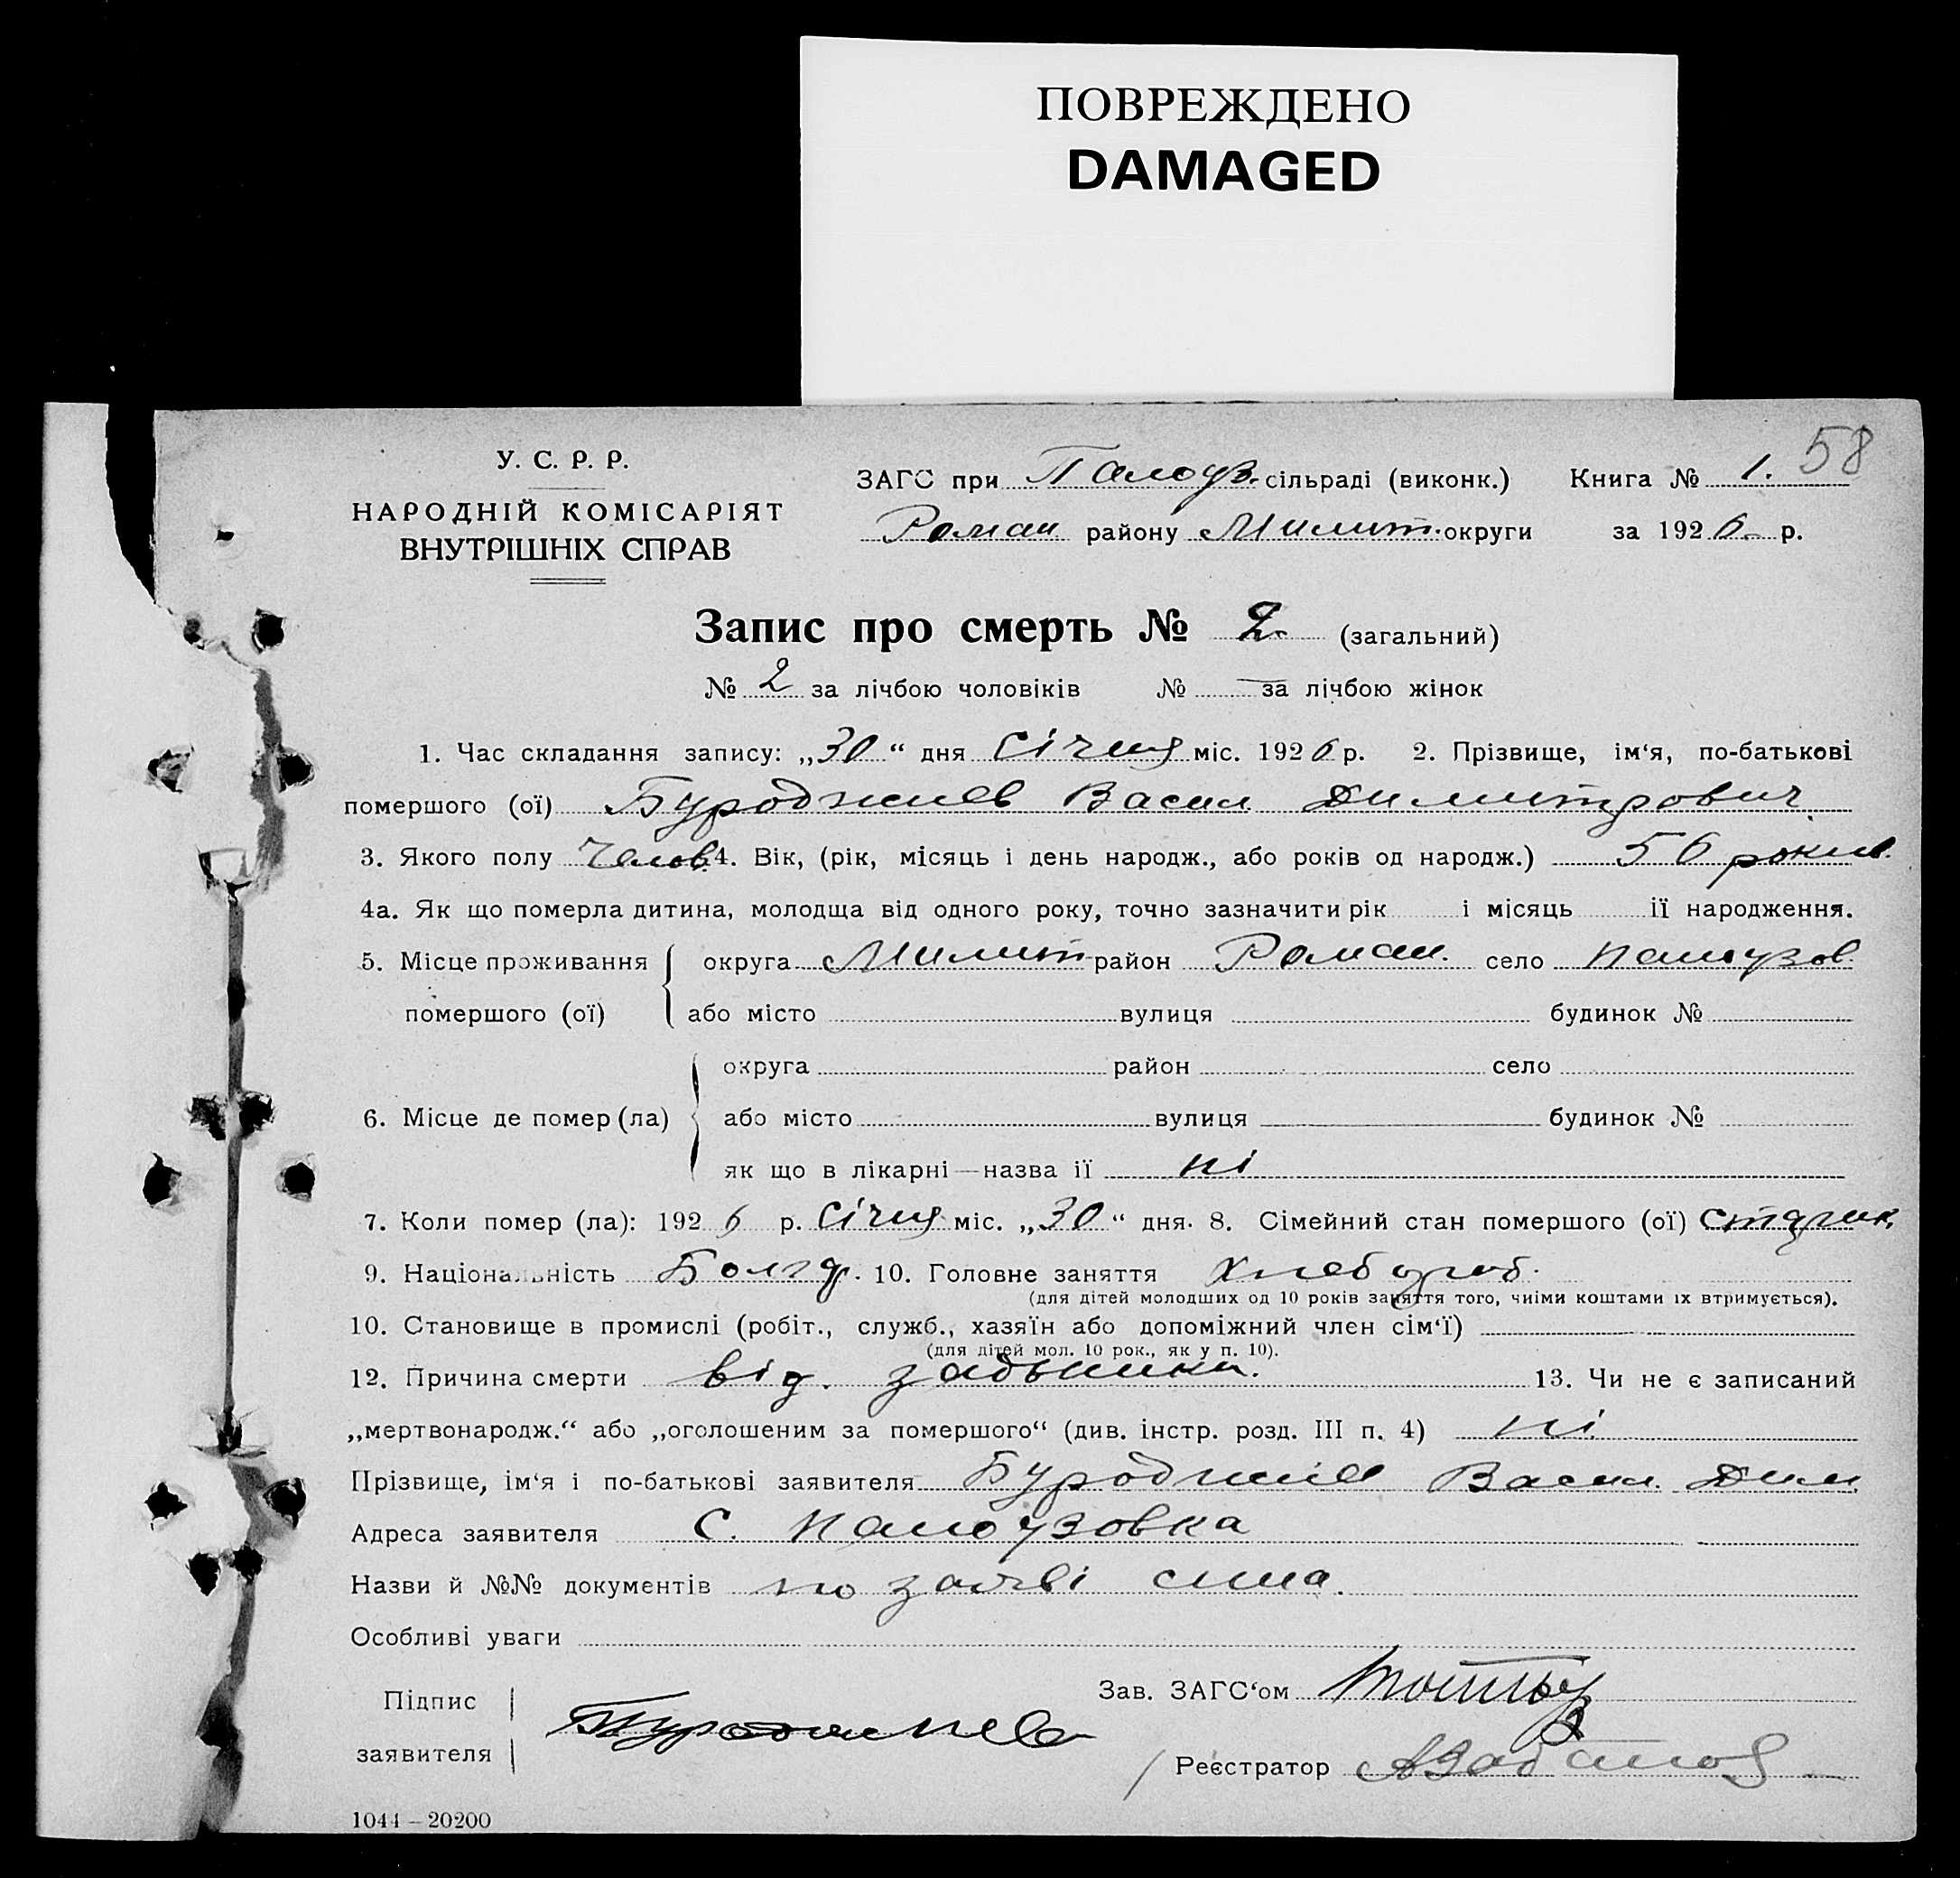 ПОВРЕЖДЕНО
DAMAGED
58
У. С. Р. Р.
НАРОДНІЙ КОМІСАРІЯТ
ВНУТРІШНІХ СПРАВ
ЗАГС при Палоуз. сільраді (виконк.) Книга № 1.
Роман району Милит. округи за 1926 р.
Запис про смерть № 2. (загальний)
№ 2 за лічбою чоловіків № — за лічбою жінок
1. Час складання запису: „30“ дня Січня міс. 1926 р. 2. Прізвище, ім‘я, по-батькові
помершого (ої) Буроджиев Васил Димитрович
3. Якого полу Челов. 4. Вік, (рік, місяць і день народж., або років од народж.) 56 років.
4а. Як що померла дитина, молодща від одного року, точно зазначити рік і місяць ії народження.
5. Місце проживання округа Милит район Роман. село Палоузов.
помершого (ої) або місто вулиця будинок №
округа район село
6. Місце де помер (ла) або місто вулиця будинок №
як що в лікарні—назва ії ні
7. Коли помер (ла): 1926 р. Січня міс. „30“ дня. 8. Сімейний стан помершого (ої)
9. Національність Болгар. 10. Головне заняття Хлебороб.
(для дітей молодших од 10 років заняття того, чиїми коштами їх втримується).
10. Становище в промислі (робіт., служб., хазяїн або допоміжний член сім‘ї)
(для дітей мол. 10 рок., як у п. 10).
12. Причина смерти від. 13. Чи не є записаний
„мертвонародж.“ або „оголошеним за помершого“ (див. інстр. розд. III п. 4) ні
Прізвище, ім‘я і по-батькові заявителя Буроджиев Васил. Дим.
Адреса заявителя С. Палоузовка
Назви й №№ документів по заяві сина.
Особливі уваги
Підпис
заявителя
Зав. ЗАГС‘ом
Реєстратор
1044 – 20200